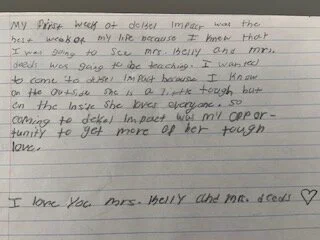 My first week at deksel Impact was the
best week of my life because I knew that
I was going to see mrs. Kelly and mrs.
deeds was going to be teaching. I wanted
to come to deksel impact because I know
on the outside she is a little tough but
on the inside she loves everyone. so
coming to deksel impact was my oppor-
tunity to get more of her tough
love.
I love you mrs. Kelly and mrs. deeds ♡